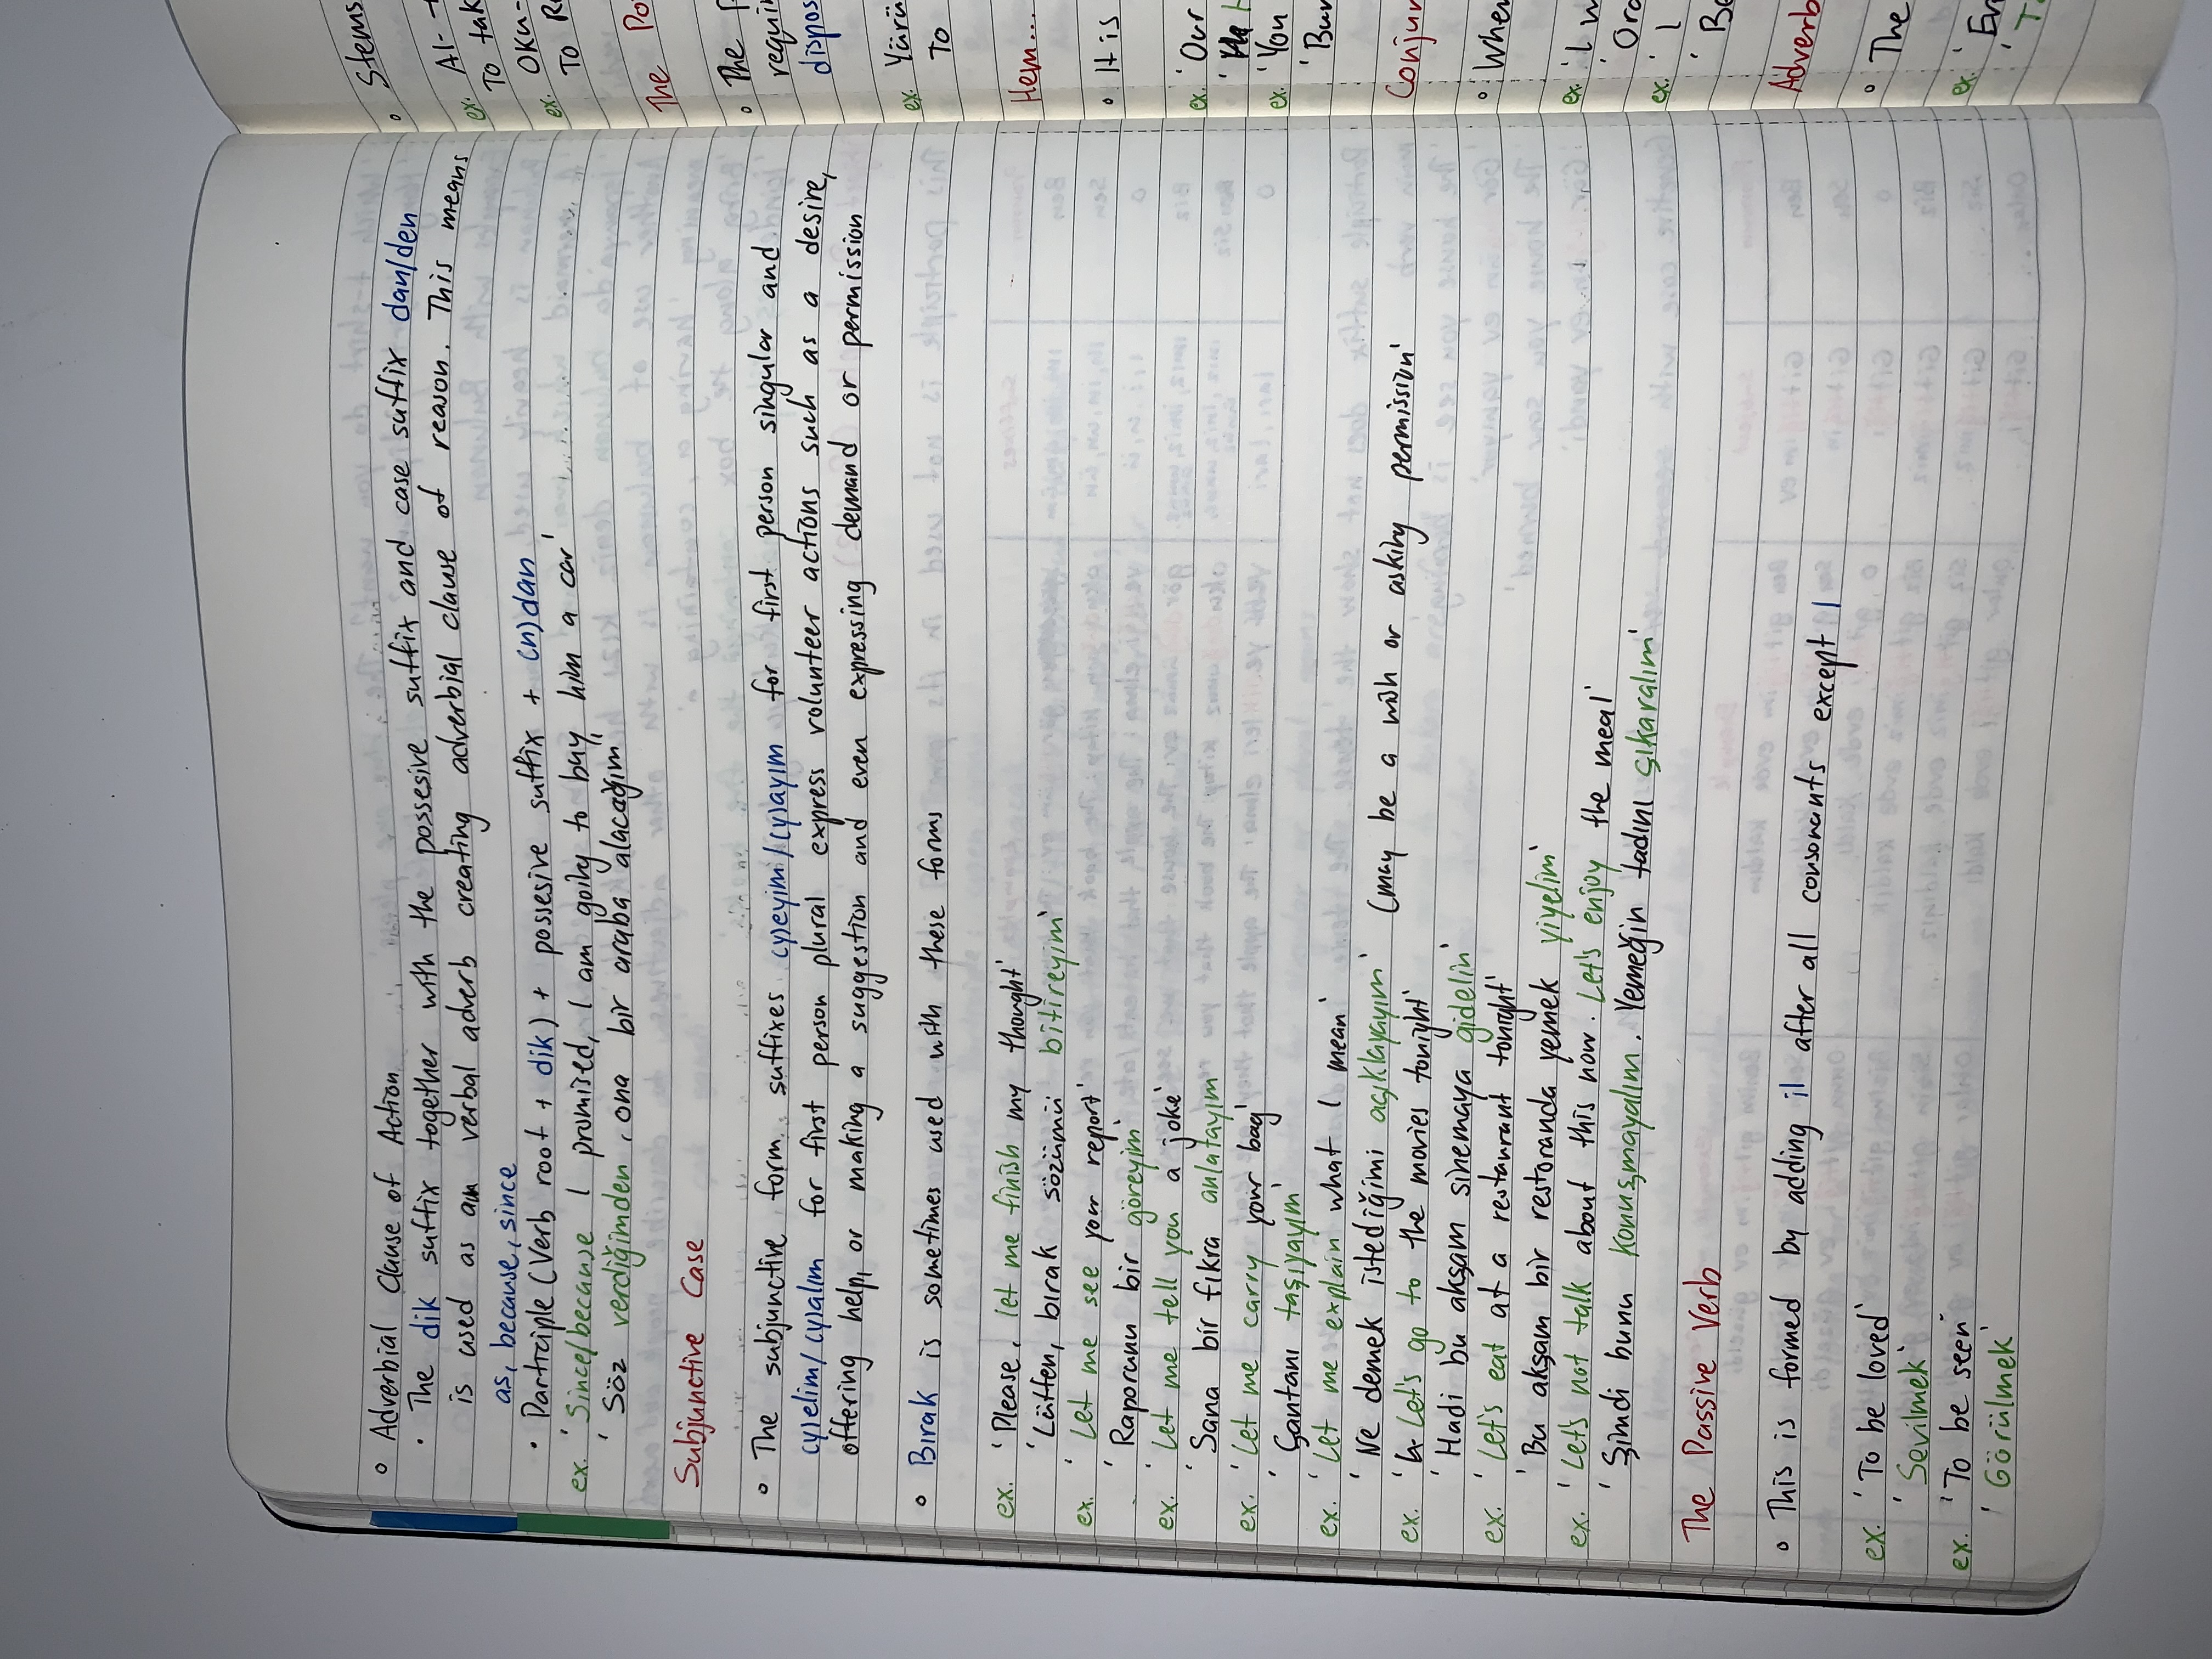 o Adverbial Clause of Action
· The dik suffix together with the possesive suffix and case suffix dan/den
is used as an verbal adverb creating adverbial clause of reason. This means
as, because, since
· Participle (Verb root + dik) + possesive suffix + (n)dan
ex. 'Since/because I promised, I am going to buy him a car'
' Söz verdiğimden, ona bir araba alacağım'
Subjunctive Case
o The subjunctive form suffixes (y)eyim/(y)ayım for first person singular and
(y)elim/(y)alım for first person plural express volunteer actions such as a desire,
offering help, or making a suggestion and even expressing demand or permission
o Bırak is sometimes used with these forms
ex. 'Please, let me finish my thought'
'Lütfen, bırak sözümü bitireyim'
ex. ' Let me see your report'
' Raporunu bir göreyim
ex. ' Let me tell you a joke'
' Sana bir fıkra anlatayım
ex. ' Let me carry your bag'
' Çantanı taşıyayım'
ex. ' Let me explain what I mean'
' Ne demek istediğimi açıklayayım' (may be a wish or asking permission'
ex. ' Let's go to the movies tonight'
' Hadi bu akşam sinemaya gidelin'
ex. ' Let's eat at a restaurant tonight'
' Bu akşam bir restoranda yemek yiyelim'
ex. ' Let's not talk about this now. Let's enjoy the meal'
' Şimdi bunu konuşmayalım. Yemeğin tadını çıkaralım'
The Passive Verb
o This is formed by adding il after all consonants except l
ex. 'To be loved'
' Sevilmek'
ex. ' To be seen'
' Görülmek'
o Stems
ex. Al-
To tak
ex. Oku-
To R
The Po
o The
requi
dispos
ex. Yürü
To
Hem...
o It is
ex. 'Our
ex. 'You
' Bur
Conjur
o When
ex. ' I w
' Ora
ex. ' I
' Be
Adverb
o The
ex.